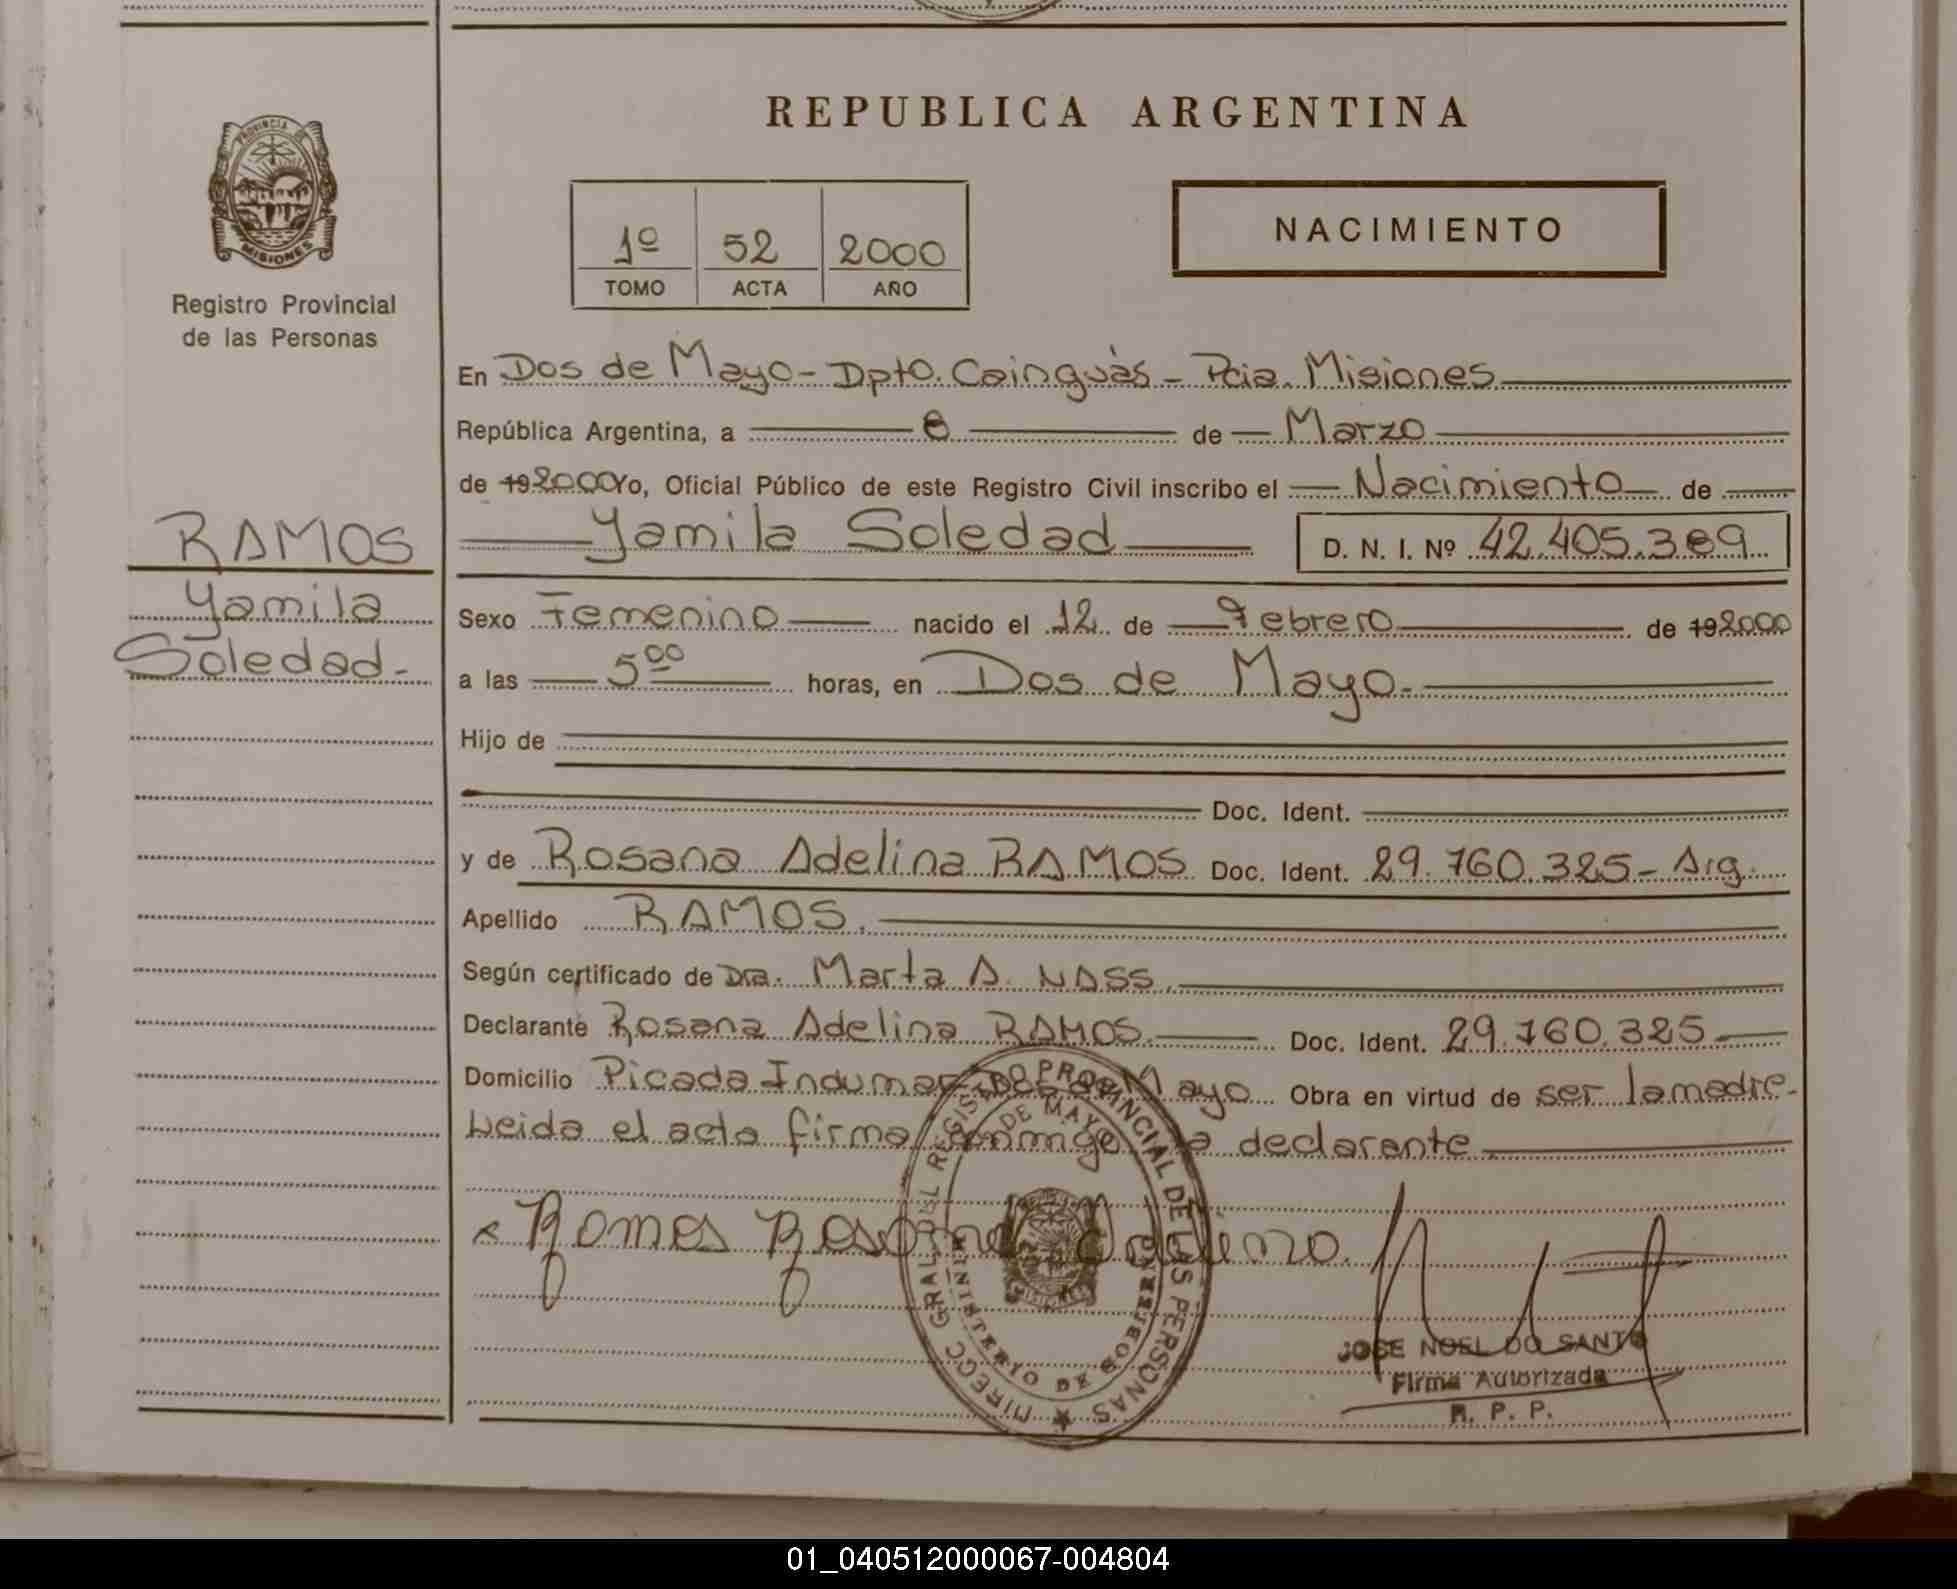 REPUBLICA ARGENTINA
PROVINCIA DE
MISIONES
Registro Provincial
de las Personas
1º 52 2000
TOMO ACTA AÑO
NACIMIENTO
En Dos de Mayo - Dpto. Cainguàs - Pcia. Misiones
República Argentina, a 8 de Marzo
de 19 2000 Yo, Oficial Público de este Registro Civil inscribo el Nacimiento de
RAMOS
Yamila
Soledad.-
Yamila Soledad D. N. I. Nº 42.405.389
Sexo Femenino nacido el 12 de Febrero de 19 2000
a las 5 00 horas, en Dos de Mayo.-
Hijo de
Doc. Ident.
y de Rosana Adelina RAMOS Doc. Ident. 29.760.325 - Arg.
Apellido RAMOS.
Según certificado de Dra. Marta A. NASS.
Declarante Rosana Adelina RAMOS. Doc. Ident. 29.760.325
Domicilio Picada Indumar Dos de Mayo Obra en virtud de ser la madre.-
Leida el acta firma conmigo la declarante
x Ramos Rosana Adelina.
GRAL DEL REGISTRO PROVINCIAL DE LAS PERSONAS
DE MAYO
MINISTERIO DE GOBIERNO
MISIONES
JOSE NOEL DO SANTO
Firma Autorizada
R. P. P.
01_040512000067-004804